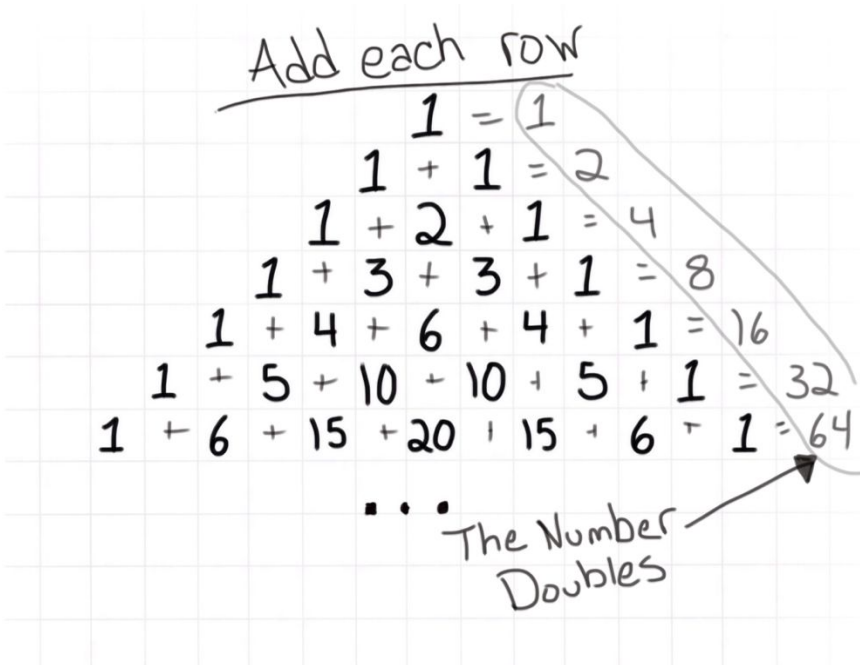 Add each row
1 = 1
1 + 1 = 2
1 + 2 + 1 = 4
1 + 3 + 3 + 1 = 8
1 + 4 + 6 + 4 + 1 = 16
1 + 5 + 10 + 10 + 5 + 1 = 32
1 + 6 + 15 + 20 + 15 + 6 + 1 = 64
...
The Number
Doubles